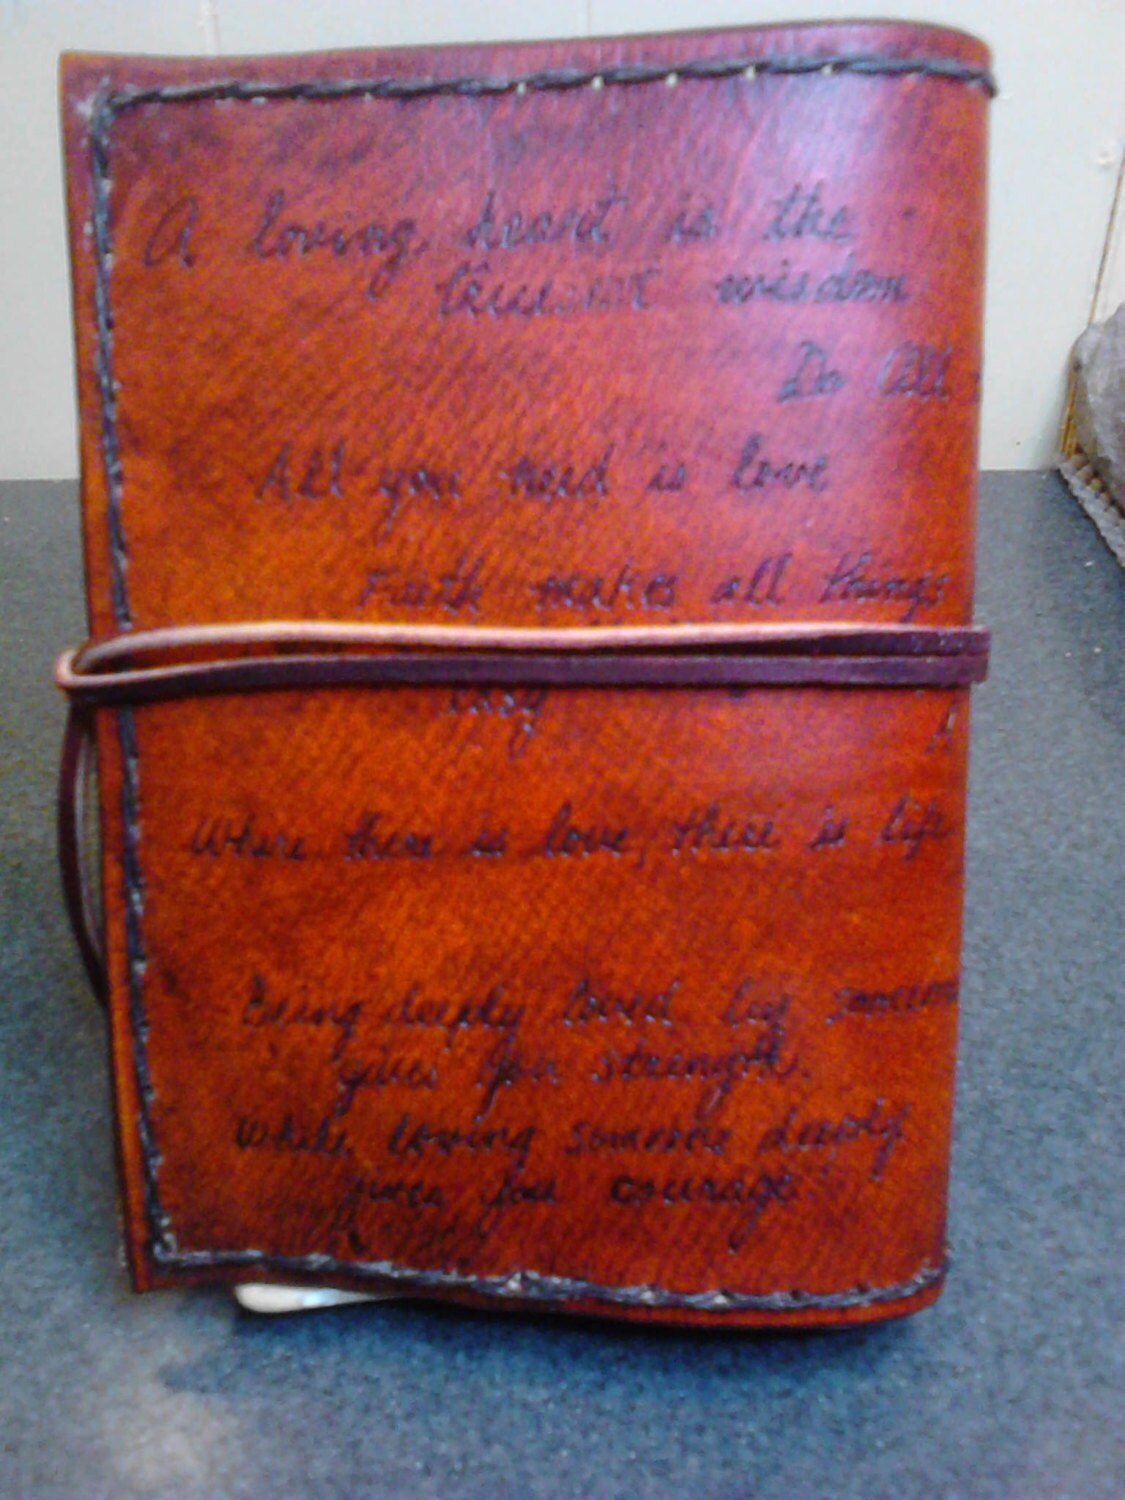 A loving heart is the
truest wisdom
Do All
All you need is love
Faith makes all things
easy
A
Where there is love, there is life
Being deeply loved by someone
gives you strength.
While loving someone deeply
gives you courage.